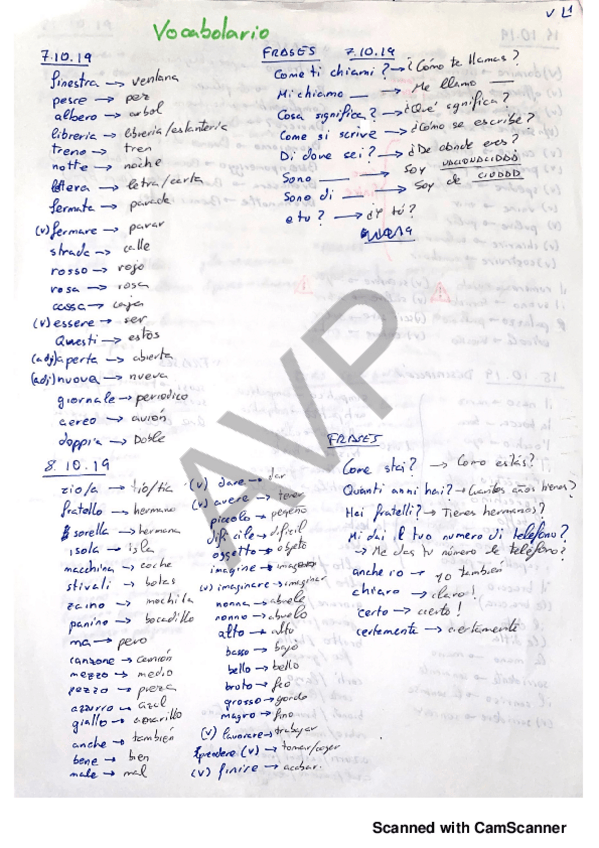 V L1
Vocabolario
7.10.19
finestra → ventana
pesce → pez
albero → arbol
libreria → libreria/estanteria
treno → tren
notte → noche
lettera → letra/carta
fermata → parada
(v) fermare → parar
strada → calle
rosso → rojo
rosa → rosa
cassa → caja
(v) essere → ser
Questi → estos
(adj) aperta → abierta
(adj) nuova → nueva
giornale → periodico
aereo → avión
doppia → Doble
FRASES 7.10.19
Come ti chiami? → ¿Cómo te llamas?
Mi chiamo ___ → Me llamo ___
Cosa significa? → ¿Qué significa?
Come si scrive → ¿Cómo se escribe?
Di dove sei? → ¿De donde eres?
Sono ___ → Soy NACIONALIDAD
Sono di ___ → Soy de CIUDAD
e tu? → ¿Y tú?
8.10.19
zio/a → tío/tía
fratello → hermano
sorella → hermana
isola → isla
macchina → coche
stivali → botas
zaino → mochila
panino → bocadillo
ma → pero
canzone → canción
mezzo → medio
pezzo → pieza
azzurro → azul
giallo → amarillo
anche → también
bene → bien
male → mal
(v) dare → dar
(v) avere → tener
piccolo → pequeño
difficile → dificil
oggetto → objeto
imagine → imagen
(v) imaginare → imaginar
nonna → abuela
nonno → abuelo
alto → alto
basso → bajo
bello → bello
broto → feo
grosso → gordo
magro → fino
(v) lavorare → trabajar
prendere (v) → tomar/coger
(v) finire → acabar.
FRASES
Come stai? → Como estás?
Quanti anni hai? → Cuantos años tienes?
Hai fratelli? → Tienes hermanos?
Mi dai il tuo numero di telefono?
→ Me das tu número de teléfono?
anche io → yo también
chiaro → claro!
certo → cierto!
certamente → ciertamente
AVP
Scanned with CamScanner